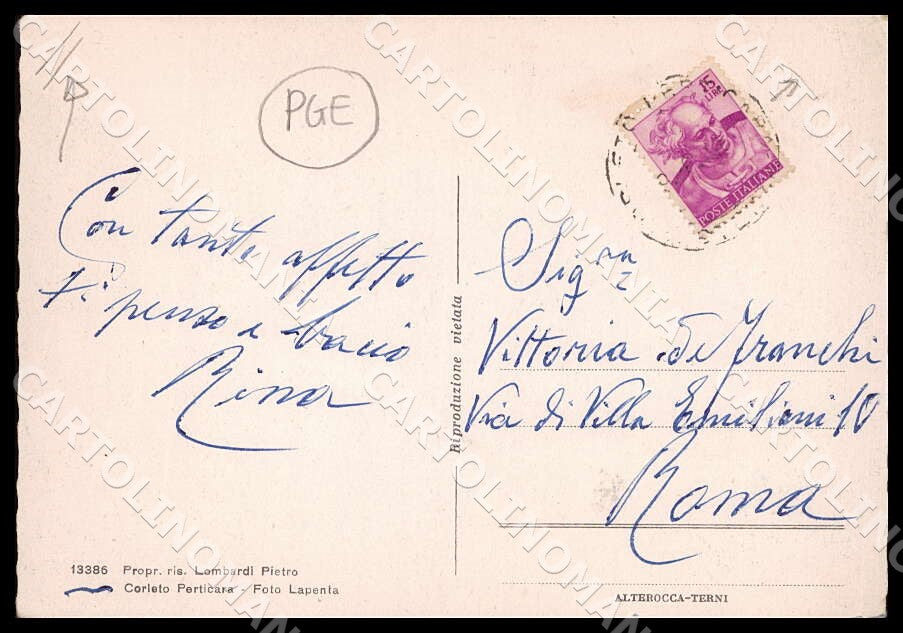 PGE
Con tanto affetto
ti penso e bacio
Rina
15
LIRE
POSTE ITALIANE
Sig.ra
Vittoria de Franchi
Via di Villa Emiliani 10
Roma
Riproduzione vietata
13386 Propr. ris. Lombardi Pietro
Corleto Perticara - Foto Lapenta
ALTEROCCA-TERNI
CARTOLINOMANIA